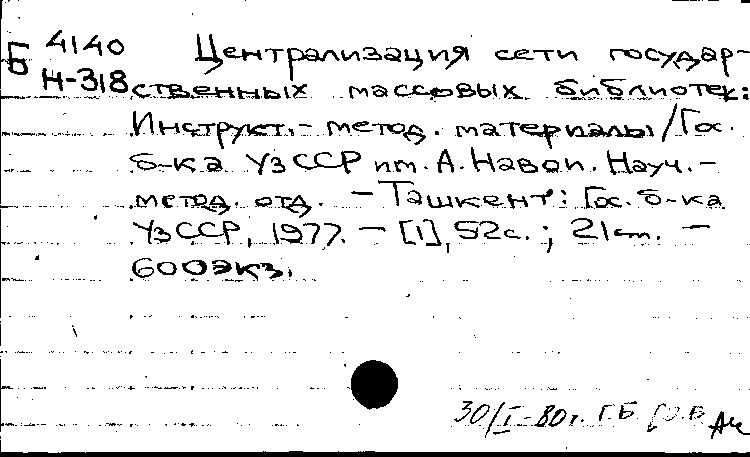 Б 4140 Централизация сети государ-
Н-318 ственных массовых библиотек:
Инструкт.-метод. материалы/Гос.
б-ка УзССР им. А. Навои. Науч.-
метод. отд. — Ташкент: Гос. б-ка
УзССР, 1977. — [1], 52с.; 21см. —
600экз.
30/I-80г. Г.Б.